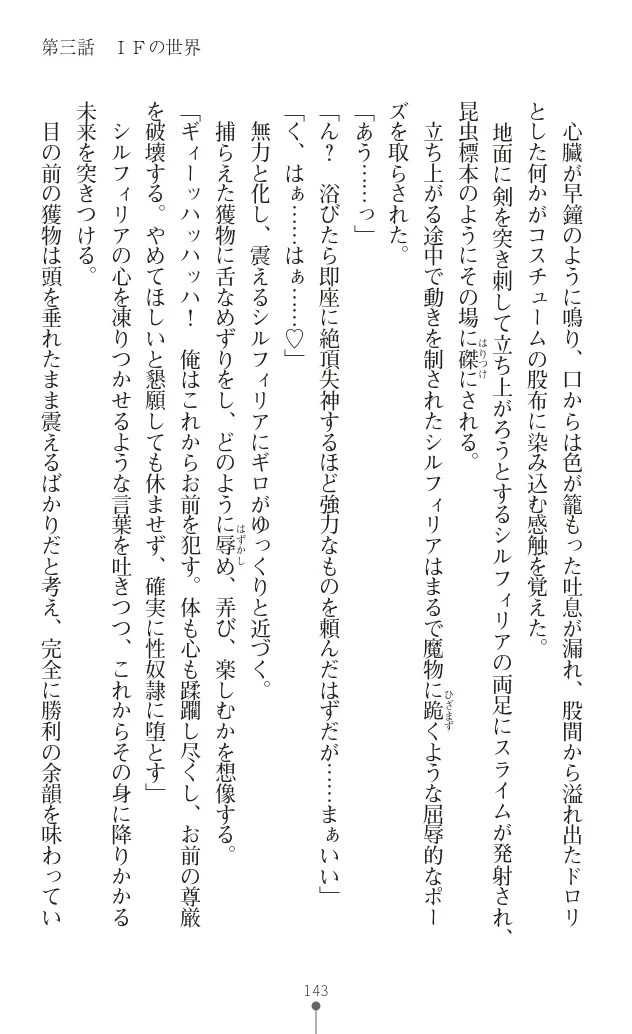 第三話　ＩＦの世界
心臓が早鐘のように鳴り、口からは色が籠もった吐息が漏れ、股間から溢れ出たドロリ
とした何かがコスチュームの股布に染み込む感触を覚えた。
地面に剣を突き刺して立ち上がろうとするシルフィリアの両足にスライムが発射され、
昆虫標本のようにその場に磔にされる。
はりつけ
立ち上がる途中で動きを制されたシルフィリアはまるで魔物に跪くような屈辱的なポー
ひざまず
ズを取らされた。
「あう……っ」
「ん？　浴びたら即座に絶頂失神するほど強力なものを頼んだはずだが……まぁいい」
「く、はぁ……はぁ……♡」
無力と化し、震えるシルフィリアにギロがゆっくりと近づく。
捕らえた獲物に舌なめずりをし、どのように辱め、弄び、楽しむかを想像する。
はずかし
「ギィーッハッハッハ！　俺はこれからお前を犯す。体も心も蹂躙し尽くし、お前の尊厳
を破壊する。やめてほしいと懇願しても休ませず、確実に性奴隷に堕とす」
シルフィリアの心を凍りつかせるような言葉を吐きつつ、これからその身に降りかかる
未来を突きつける。
目の前の獲物は頭を垂れたまま震えるばかりだと考え、完全に勝利の余韻を味わってい
143